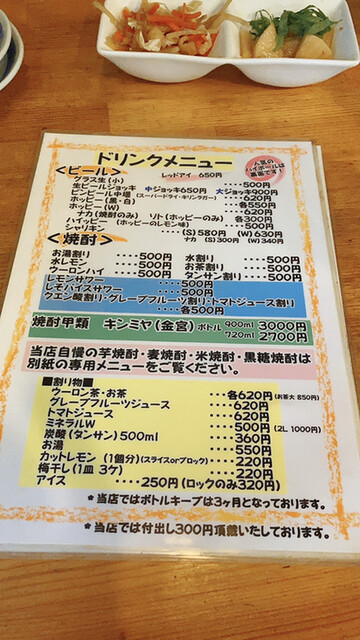 ドリンクメニュー
人気の
ハイボールは
裏面です!
<ビール>
レッドアイ 650円
グラス生(小) ････500円
生ビールジョッキ 中ジョッキ650円 大ジョッキ900円
ビンビール中壜 (スーパードライ・キリンラガー) ････620円
ホッピー(黒・白) ････各550円
ホッピー(W) ････620円
ナカ(焼酎のみ) ソト(ホッピーのみ) 各300円
ハイッピー (ホッピーのレモン味) ････500円
シャリキン ････(S)580円 (W)630円
ナカ (S)300円 (W)340円
<焼酎>
お湯割り ････500円 水割り ････500円
水レモン ････500円 お茶割り ････500円
ウーロンハイ ････500円 タンサン割り････500円
レモンサワー ････500円
レそハイスサワー ････500円
クエン酸割り・グレープフルーツ割り・トマトジュース割り
････各500円
焼酎甲類 キンミヤ(金宮) ボトル 900ml 3000円
720ml 2700円
当店自慢の芋焼酎・麦焼酎・米焼酎・黒糖焼酎は
別紙の専用メニューをご覧ください。
■割り物■
ウーロン茶・お茶 ････各620円 (お茶大 850円)
グレープフルーツジュース ････620円
トマトジュース ････620円
ミネラルW ････500円 (2L 1000円)
炭酸(タンサン)500ml ････360円
お湯 ････550円
カットレモン (1個分)(スライスorブロック) ････220円
梅干し(1皿 3ケ) ････220円
アイス ････250円(ロックのみ320円)
*当店ではボトルキープは3ヶ月となっております。
*当店では付出し300円頂戴いたしております。